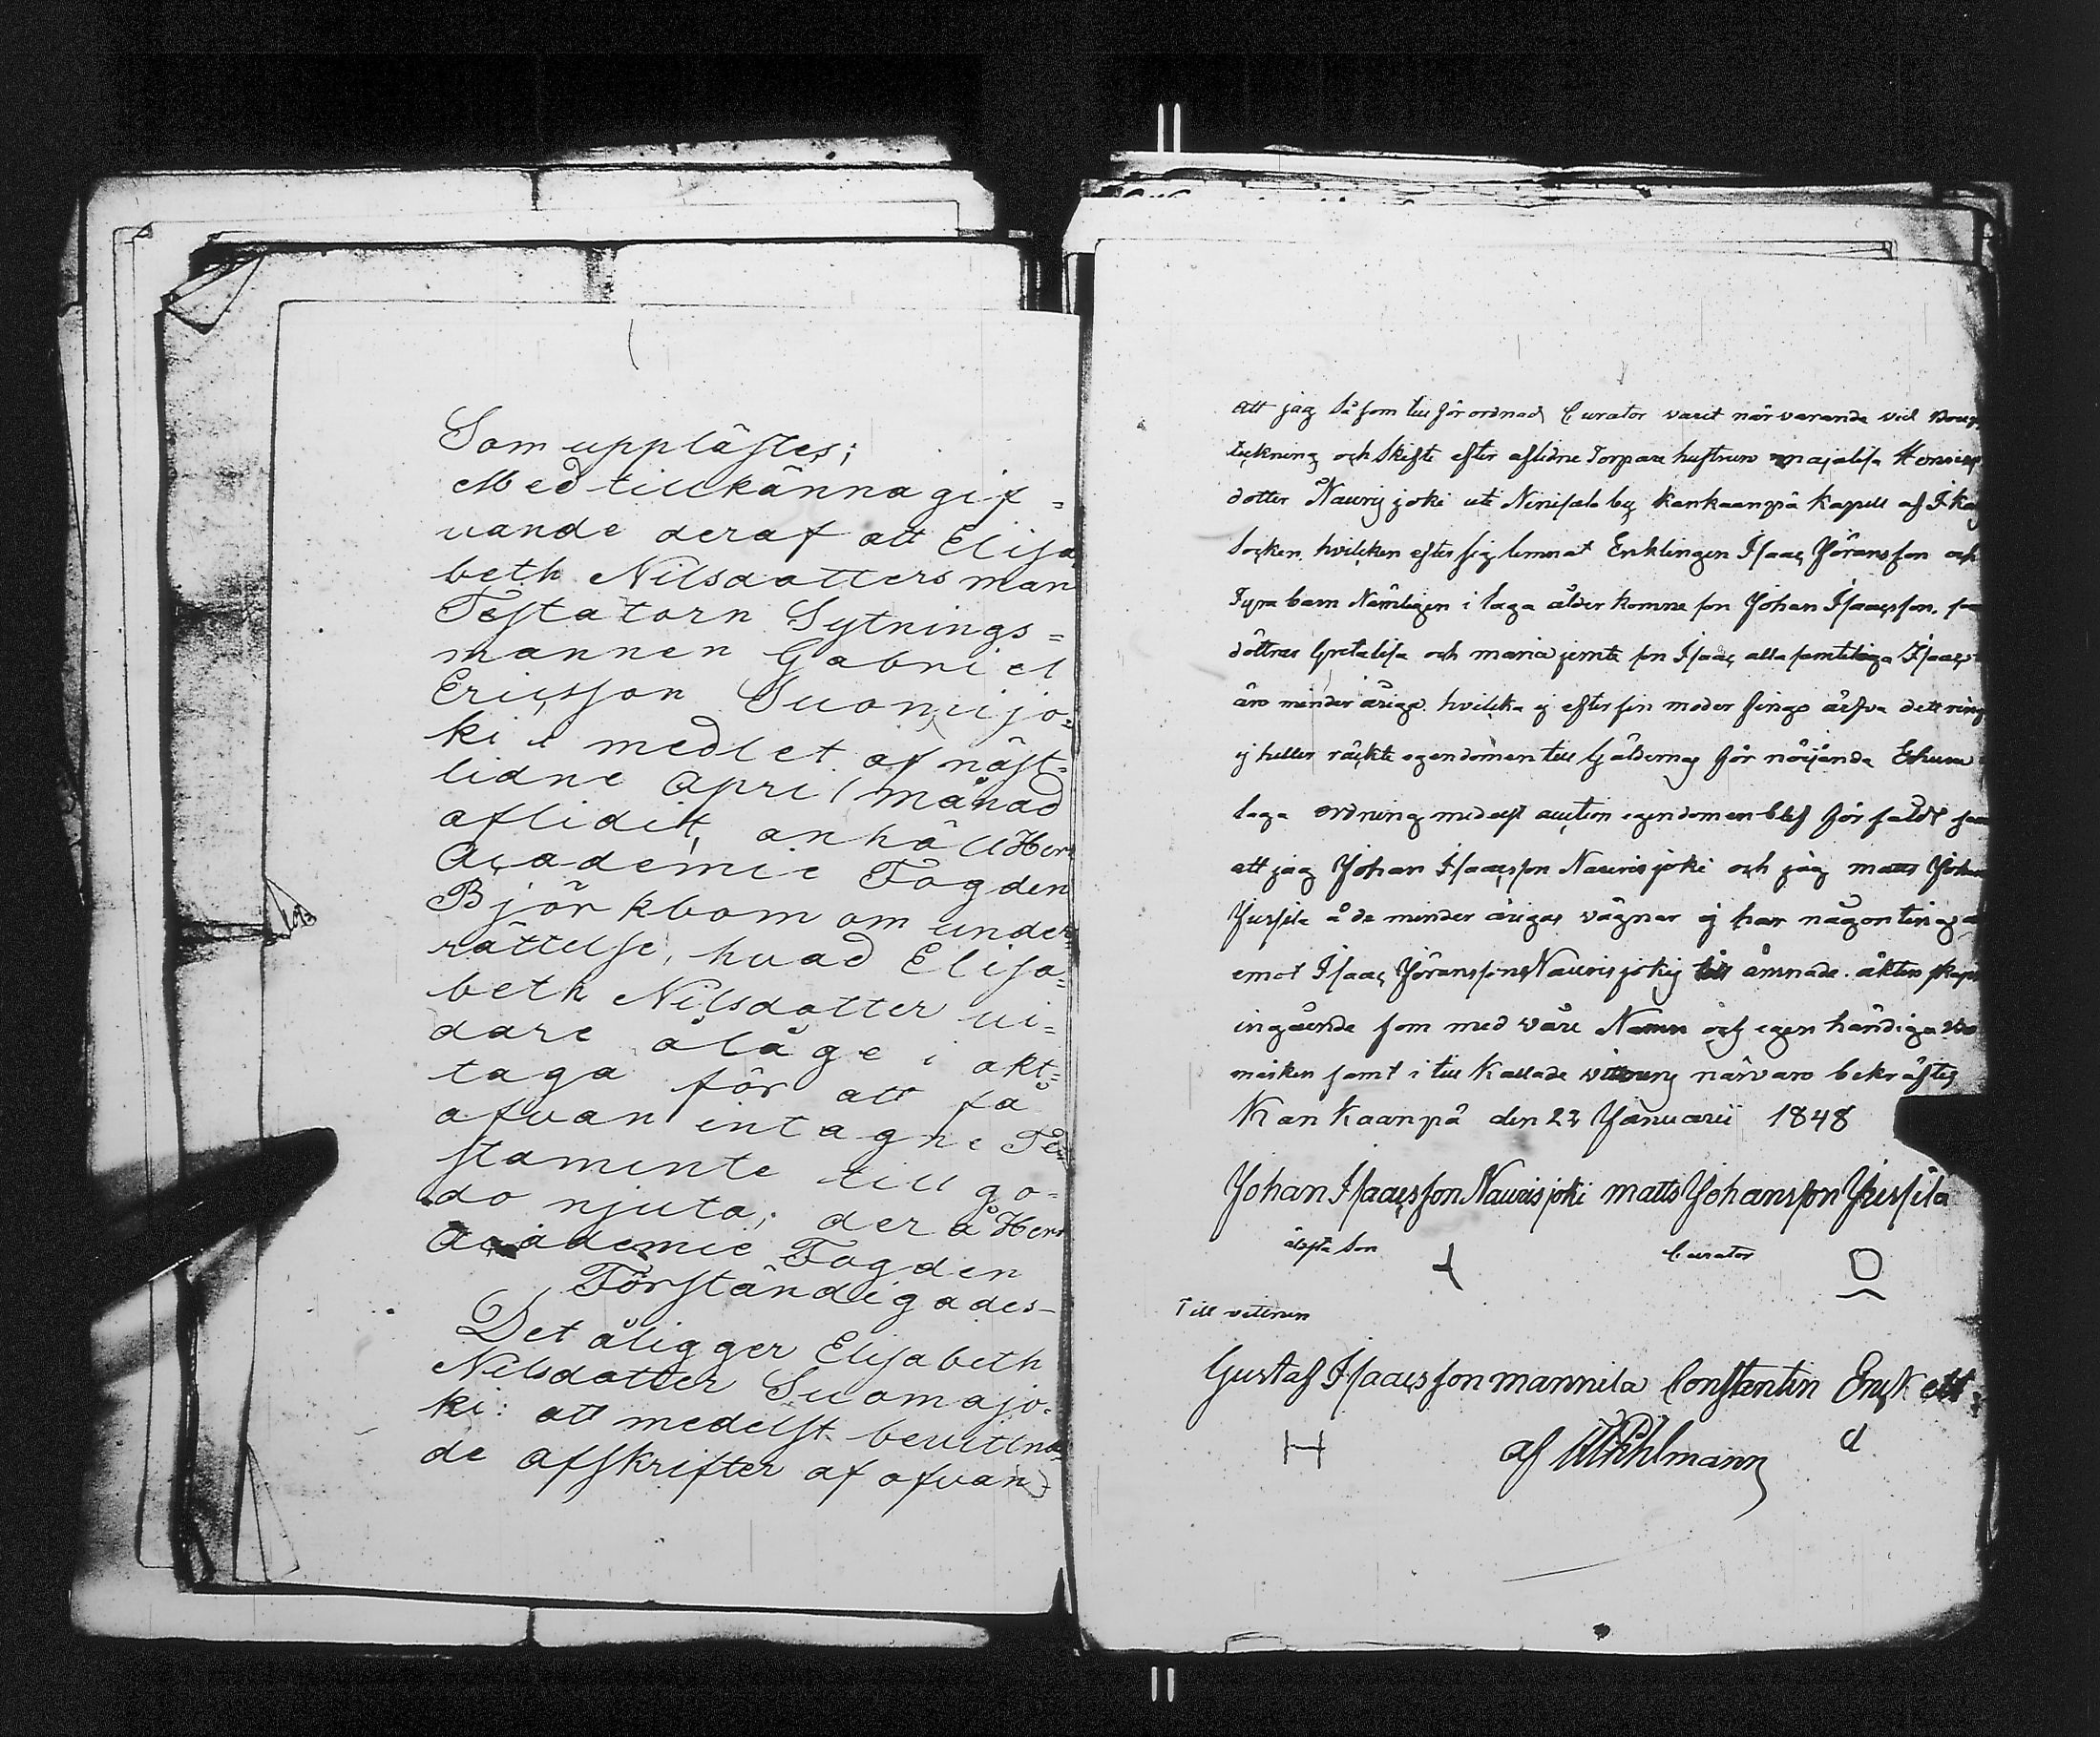 Som upplästes;
Med tillkänna gif=
vande deraf att Elisa
beth Nilsdotters man
Testatorn Sytnings=
mannen Gabriel
Ericsson Suomijo=
ki i medlet af näst=
lidne April månad
aflidit, anhöll Herr
Academie Fogden
Björkbom om under=
rättelse, hvad Elisa=
beth Nilsdotter vi=
dare ålåge i akt=
taga för att få
ofvan intagne Te=
stamente till go=
do njuta; der å Herr
Academie Fogden
Förständigades
Det åligger Elisabeth
Nilsdotter Suomajo=
ki: att medelst bevittna
de afskrifter af ofvan
Att jag såsom till förordnad Curator varit närvarande vid Boup
teckning och Skifte efter aflidne Torpare hustrun majalisa Henrics
dotter Naurisjoki uti Ninisalo by Kankaanpä Kapell af Ika
Socken. hvilcken efter sig lemnat Enklingen Isaac Jöransson och
Fyra barn Nämligen i laga ålder komne son Johan Isaacsson.
döttrar Gretalisa och maria jemte son Isaac alla samteliga Isaacs
äro minderåriga. hvilcka ej efter sin moder fingo ärfva dett ring
ej heller räckte egendomen till Gäldernas för nöijande Ehuru
laga ordning medelst auction egendomen blef försåldt
att jag Johan Isaacsson Naurisjoki och jag matts Johan
Jussila å de minderårigas vägnar ej har någonting
emot Isaac Jöranssons Naurisjokij till ämnade äktenskaps
ingående som med våre Namn och egenhändiga Bo
märken samt i till Kallade vittnens närvaro bekräftes
Kankaanpä den 22 Januarii 1848
Johan Isaacsson Naurisjoki matts Johansson Jussila
älsta Son Curator
Till vittnen
Gustaf Isaacsson mannila Constantin
af